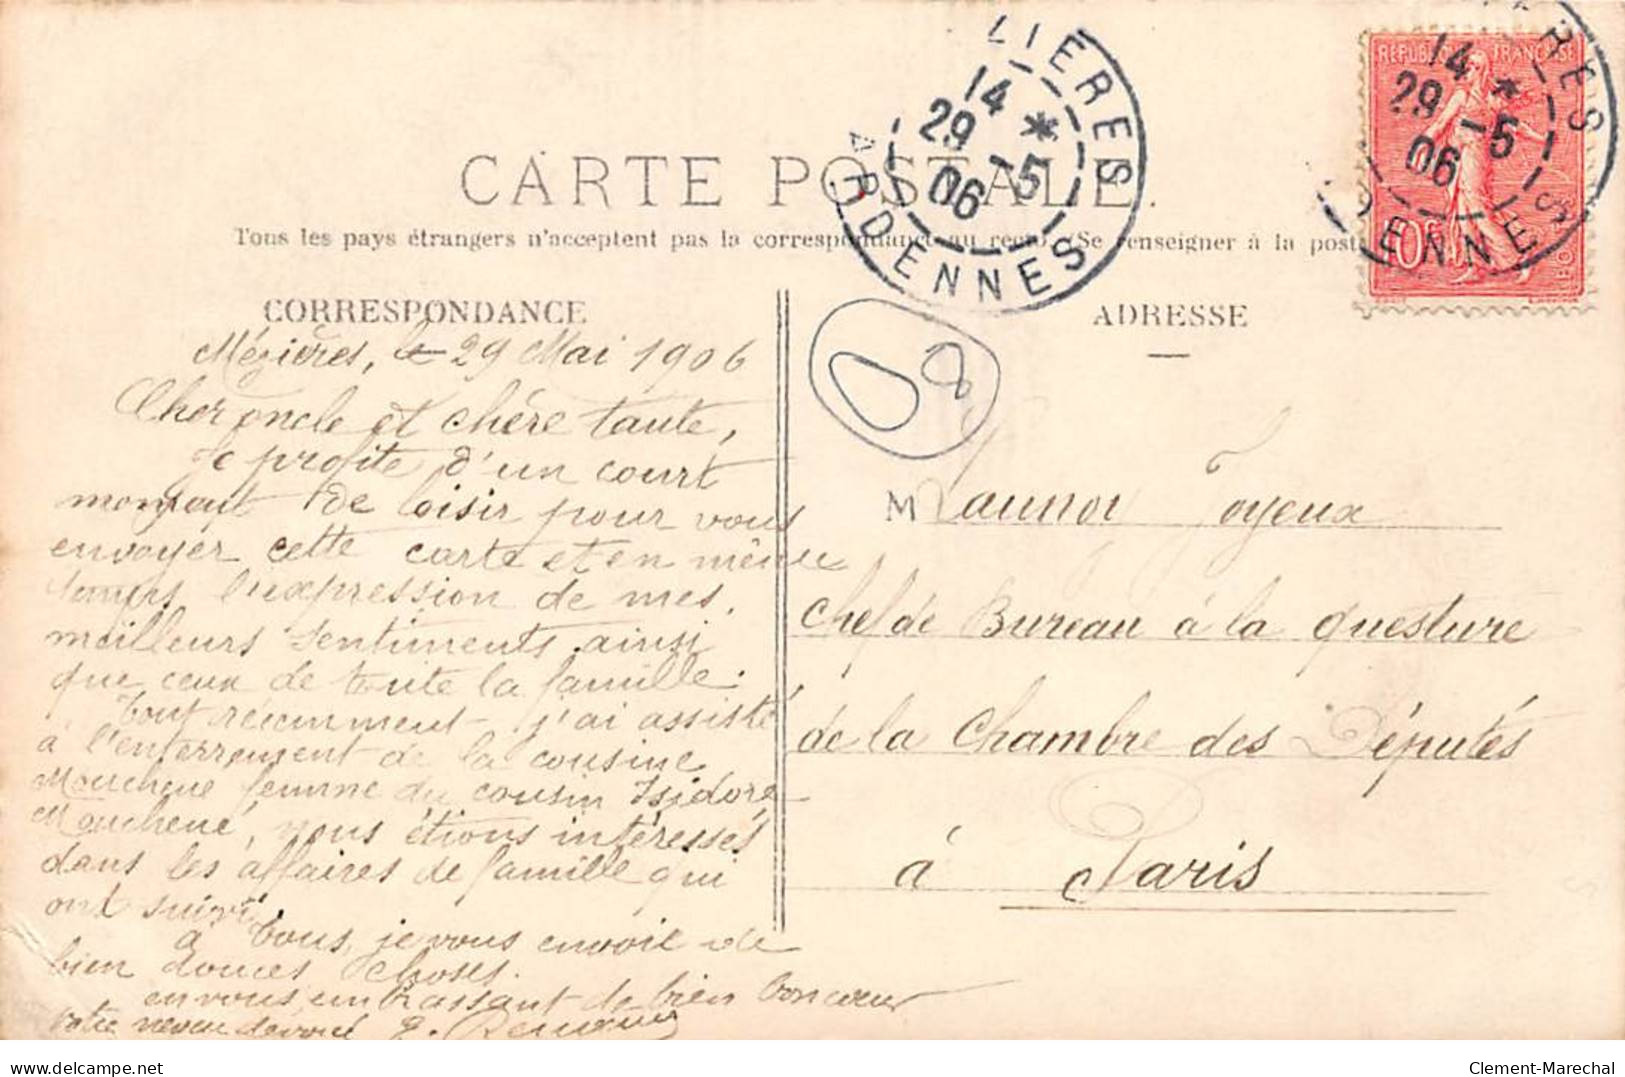 CARTE POSTALE.
Tous les pays étrangers n'acceptent pas la correspondance au recto. (Se renseigner à la poste
CORRESPONDANCE
Mézières, le 29 Mai 1906
Cher oncle et chère tante,
Je profite d'un court
moment de loisir pour vous
envoyer cette carte et en même
temps l'expression de mes
meilleurs sentiments ainsi
que ceux de toute la famille.
Tout récemment j'ai assisté
à l'enterrement de la cousine
femme du cousin Isidore
nous étions intéressés
dans les affaires de famille qui
ont suivi.
à tous, je vous envoie de
bien douces choses.
en vous embrassant de bien bon coeur
votre neveu dévoué
ADRESSE
Joyeux
chef de Bureau à la questure
de la Chambre des Députés
à Paris
08
LIERES
14 *
29 -5
06
ARDENNES
REPUBLIQUE FRANÇAISE
14 *
29 -5
06
RES
ENNES
delcampe.net
Clement-Marechal